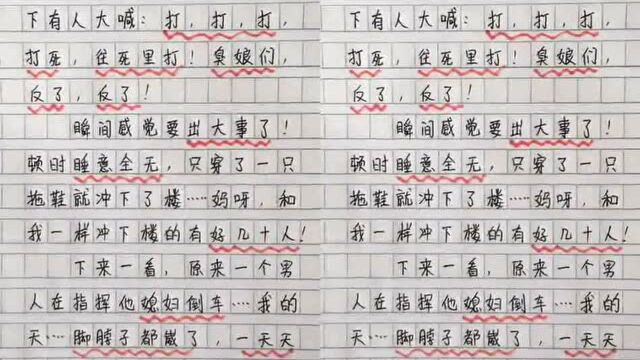 下有人大喊：打，打，打，
打死，往死里打！臭娘们，
反了，反了！
瞬间感觉要出大事了！
顿时睡意全无，只穿了一只
拖鞋就冲下了楼……妈呀，和
我一样冲下楼的有好几十人！
下来一看，原来一个男
人在指挥他媳妇倒车……我的
天…脚脖子都崴了，一天天
下有人大喊：打，打，打，
打死，往死里打！臭娘们，
反了，反了！
瞬间感觉要出大事了！
顿时睡意全无，只穿了一只
拖鞋就冲下了楼……妈呀，和
我一样冲下楼的有好几十人！
下来一看，原来一个男
人在指挥他媳妇倒车……我的
天…脚脖子都崴了，一天天